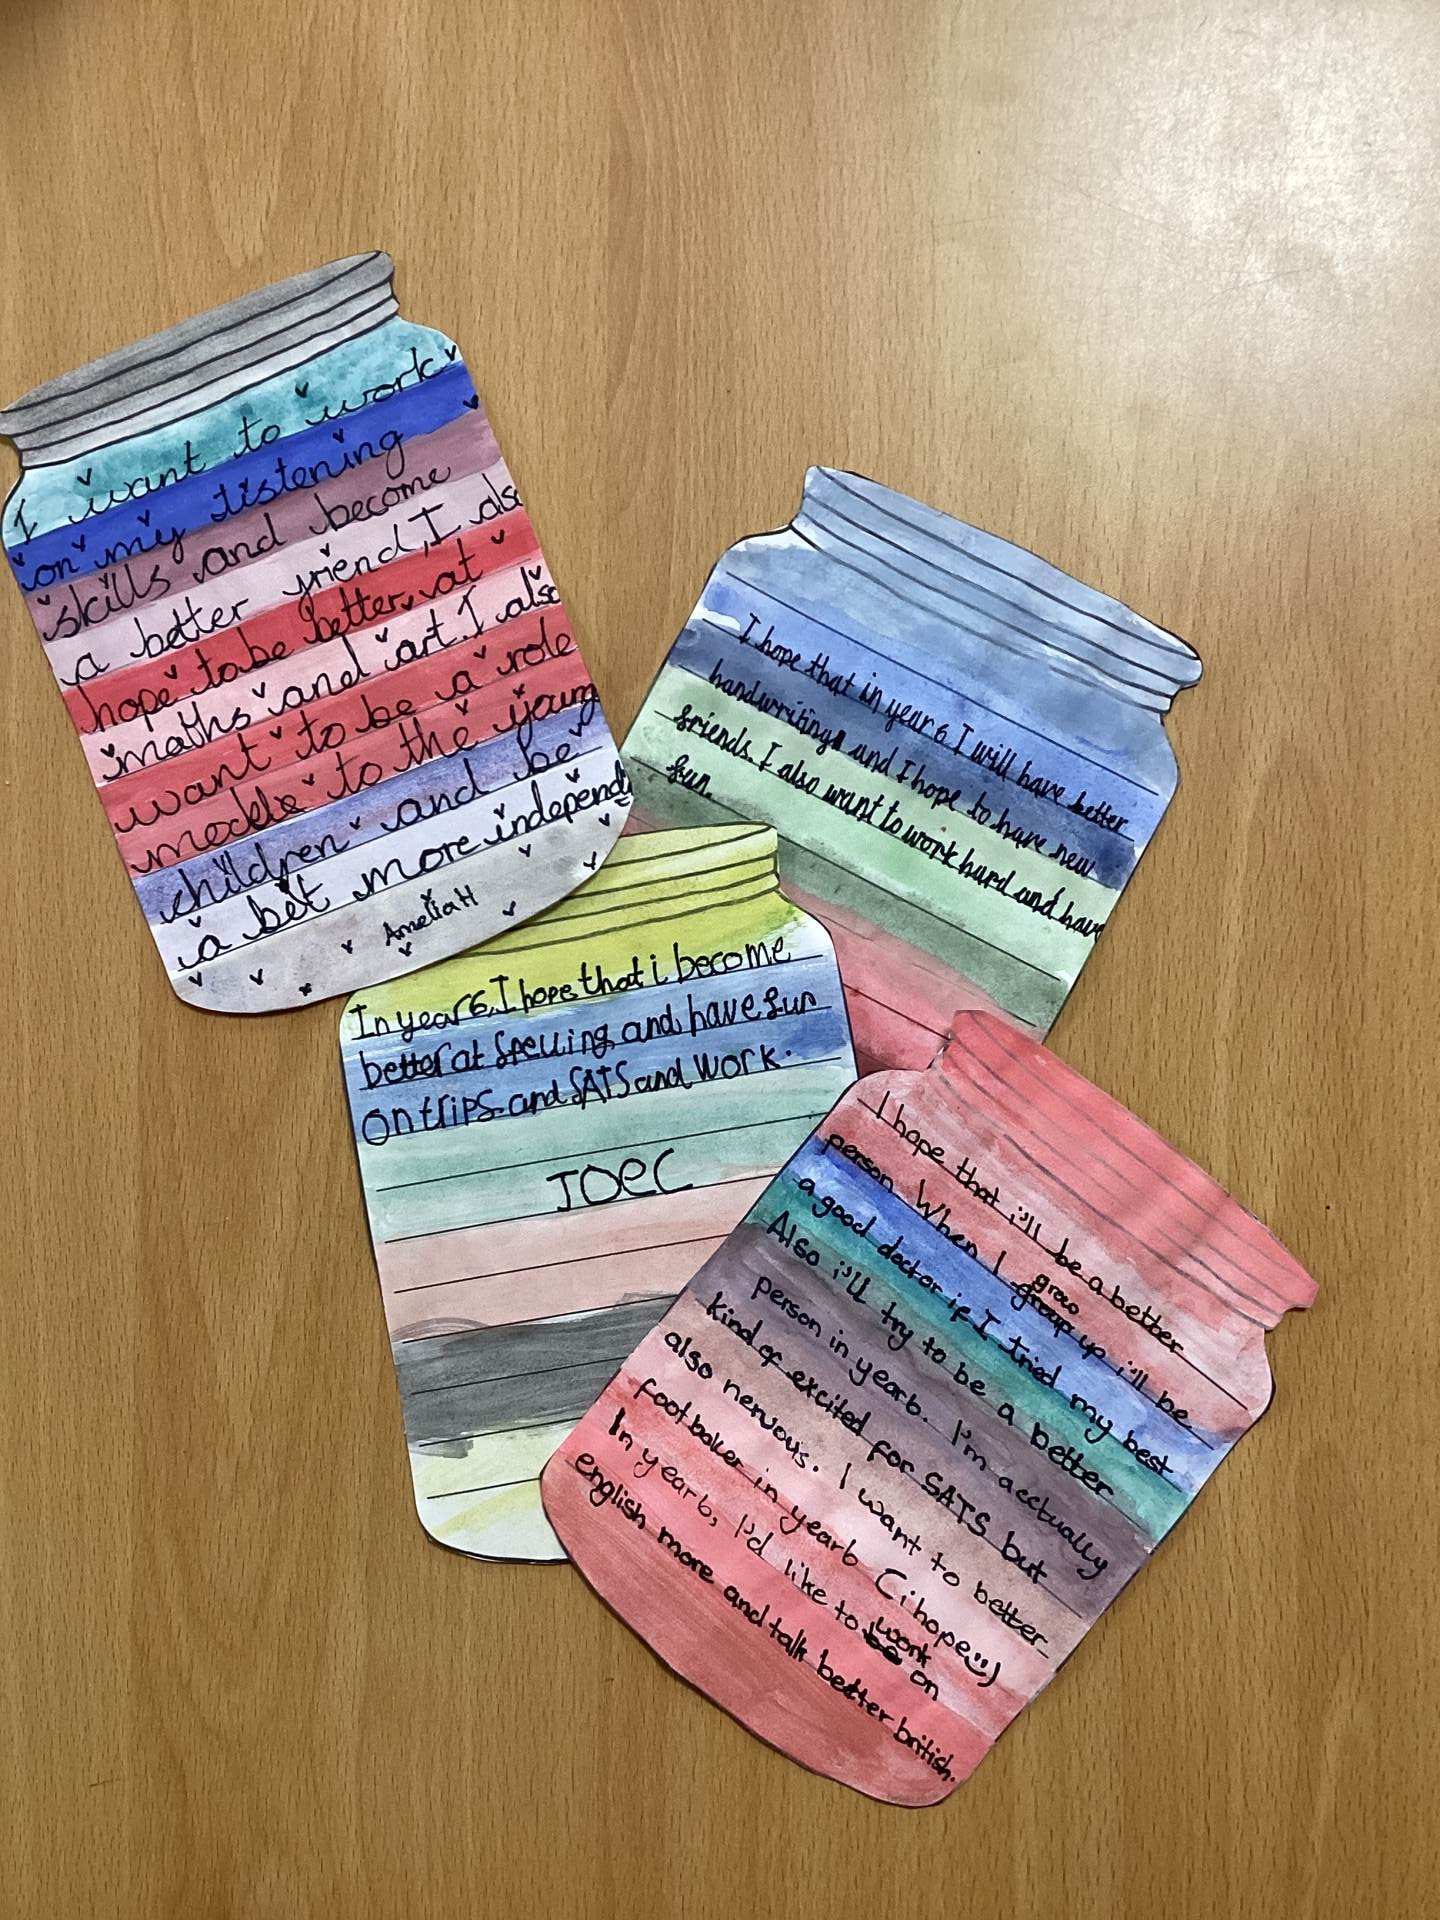 I want to work
on my listening
skills and become
a better friend, I also
hope to be better at
maths and art. I also
want to be a role
to the young
children and be
a bit more independ
Amelia H
I hope that in year 6 I will have better
handwriting and I hope to have new
friends. I also want to work hard and have
fun.
In year 6, I hope that i become
better at spelling and have fun
on trips and SATS and work.
JOEC
I hope that i'll be a better
person. When I grow up i'll be
a good doctor if I tried my best
Also i'll try to be a better
person in year 6. I'm acctually
kind of excited for SATS but
also nervous. I want to better
footballer in year 6 (i hope :))
In year 6, I'd like to work on
english more and talk better british.